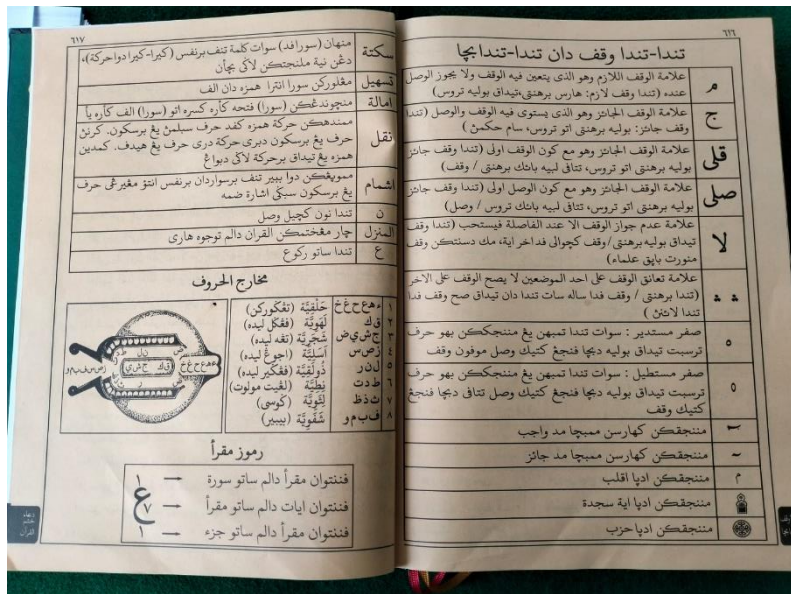 ٦١٦
تندا-تندا وقف دان تندا-تندا بچا
م
علامة الوقف اللازم وهو الذى يتعين فيه الوقف ولا يجوز الوصل
عنده (تندا وقف لازم: هارس برهنتي، تيداق بوليه تروس)
ج
علامة الوقف الجائز وهو الذى يستوى فيه الوقف والوصل (تندا
وقف جائز: بوليه برهنتي اتو تروس، سام حكمڽ)
قلى
علامة الوقف الجائز وهو مع كون الوقف اولى (تندا وقف جائز
بوليه برهنتي اتو تروس، تتاڤي لبيه بائك برهنتي / وقف)
صلى
علامة الوقف الجائز وهو مع كون الوصل اولى (تندا وقف جائز
بوليه برهنتي اتو تروس، تتاڤي لبيه بائك تروس / وصل)
لا
علامة عدم جواز الوقف الا عند الفاصلة فيستحب (تندا وقف
تيداق بوليه برهنتي/وقف كچوالي فد اخر اية، مك دسنتكن وقف
منورت باڽق علماء)
علامة تعانق الوقف على احد الموضعين لا يصح الوقف على الاخر
(تندا برهنتي / وقف فدا ساله سات تندا دان تيداق صح وقف فدا
تندا لائنڽ)
صفر مستدير : سوات تندا تمبهن يڠ مننجككن بهو حرف
ترسبت تيداق بوليه دبچا فنجڠ كتيك وصل موفون وقف
صفر مستطيل : سوات تندا تمبهن يڠ مننجككن بهو حرف
ترسبت تيداق بوليه دبچا فنجڠ كتيك وصل تتافي دبچا فنجڠ
كتيك وقف
مننجقكن كهارسن ممبچا مد واجب
مننجقكن كهارسن ممبچا مد جائز
مننجقكن ادڽا اقلب
مننجقكن ادڽا اية سجدة
مننجقكن ادڽا حزب
٦١٧
سكتة
منهان (سورا فد) سوات كلمة تنف برنفس (كيرا-كيرا دوا حركة)،
دڠن نية ملنجتكن لاݢي بچأن
تسهيل
مڠلوركن سورا انترا همزه دان الف
امالة
منچوندڠكن (سورا) فتحه كأره كسره اتو (سورا) الف كأره يأ
نقل
ممندهكن حركة همزه كفد حرف سبلمڽ يڠ برسكون. كرنڽ
حرف يڠ برسكون دبري حركة دري حرف يڠ هيدف. كمدين
همزه يڠ تيداق برحركة لاݢي دبواڠ
اشمام
دوا بيبير تنف برسوارا دان برنفس انتوق مڠيرڠي حرف
يڠ برسكون سبݢي اشارة ضمه
ن
تندا نون كچيل وصل
المنزل
چار مڠختمكن القران دالم توجوه هاري
ع
تندا ساتو ركوع
مخارج الحروف
١ ءهعحغخ حَلْقِيَّة (تڠݢوركن)
٢ ق ك لَهَوِيَّة (فڠكل ليده)
٣ ج ش ي ض شَجَرِيَّة (تڠه ليده)
٤ ز س ص اَسَلِيَّة (اجوڠ ليده)
٥ ل ن ر ذَوْلَقِيَّة (فڠݢير ليده)
٦ ط د ت نِطَعِيَّة (لڠيت مولوت)
٧ ث ذ ظ لِثَوِيَّة (ݢوسي)
٨ ف ب م و شَفَوِيَّة (بيبير)
رموز مقرأ
ع
٧
١
١
فننتوان مقرأ دالم ساتو سورة
فننتوان ايات دالم ساتو مقرأ
فننتوان مقرأ دالم ساتو جزء
دعاء
ختم
القرآن